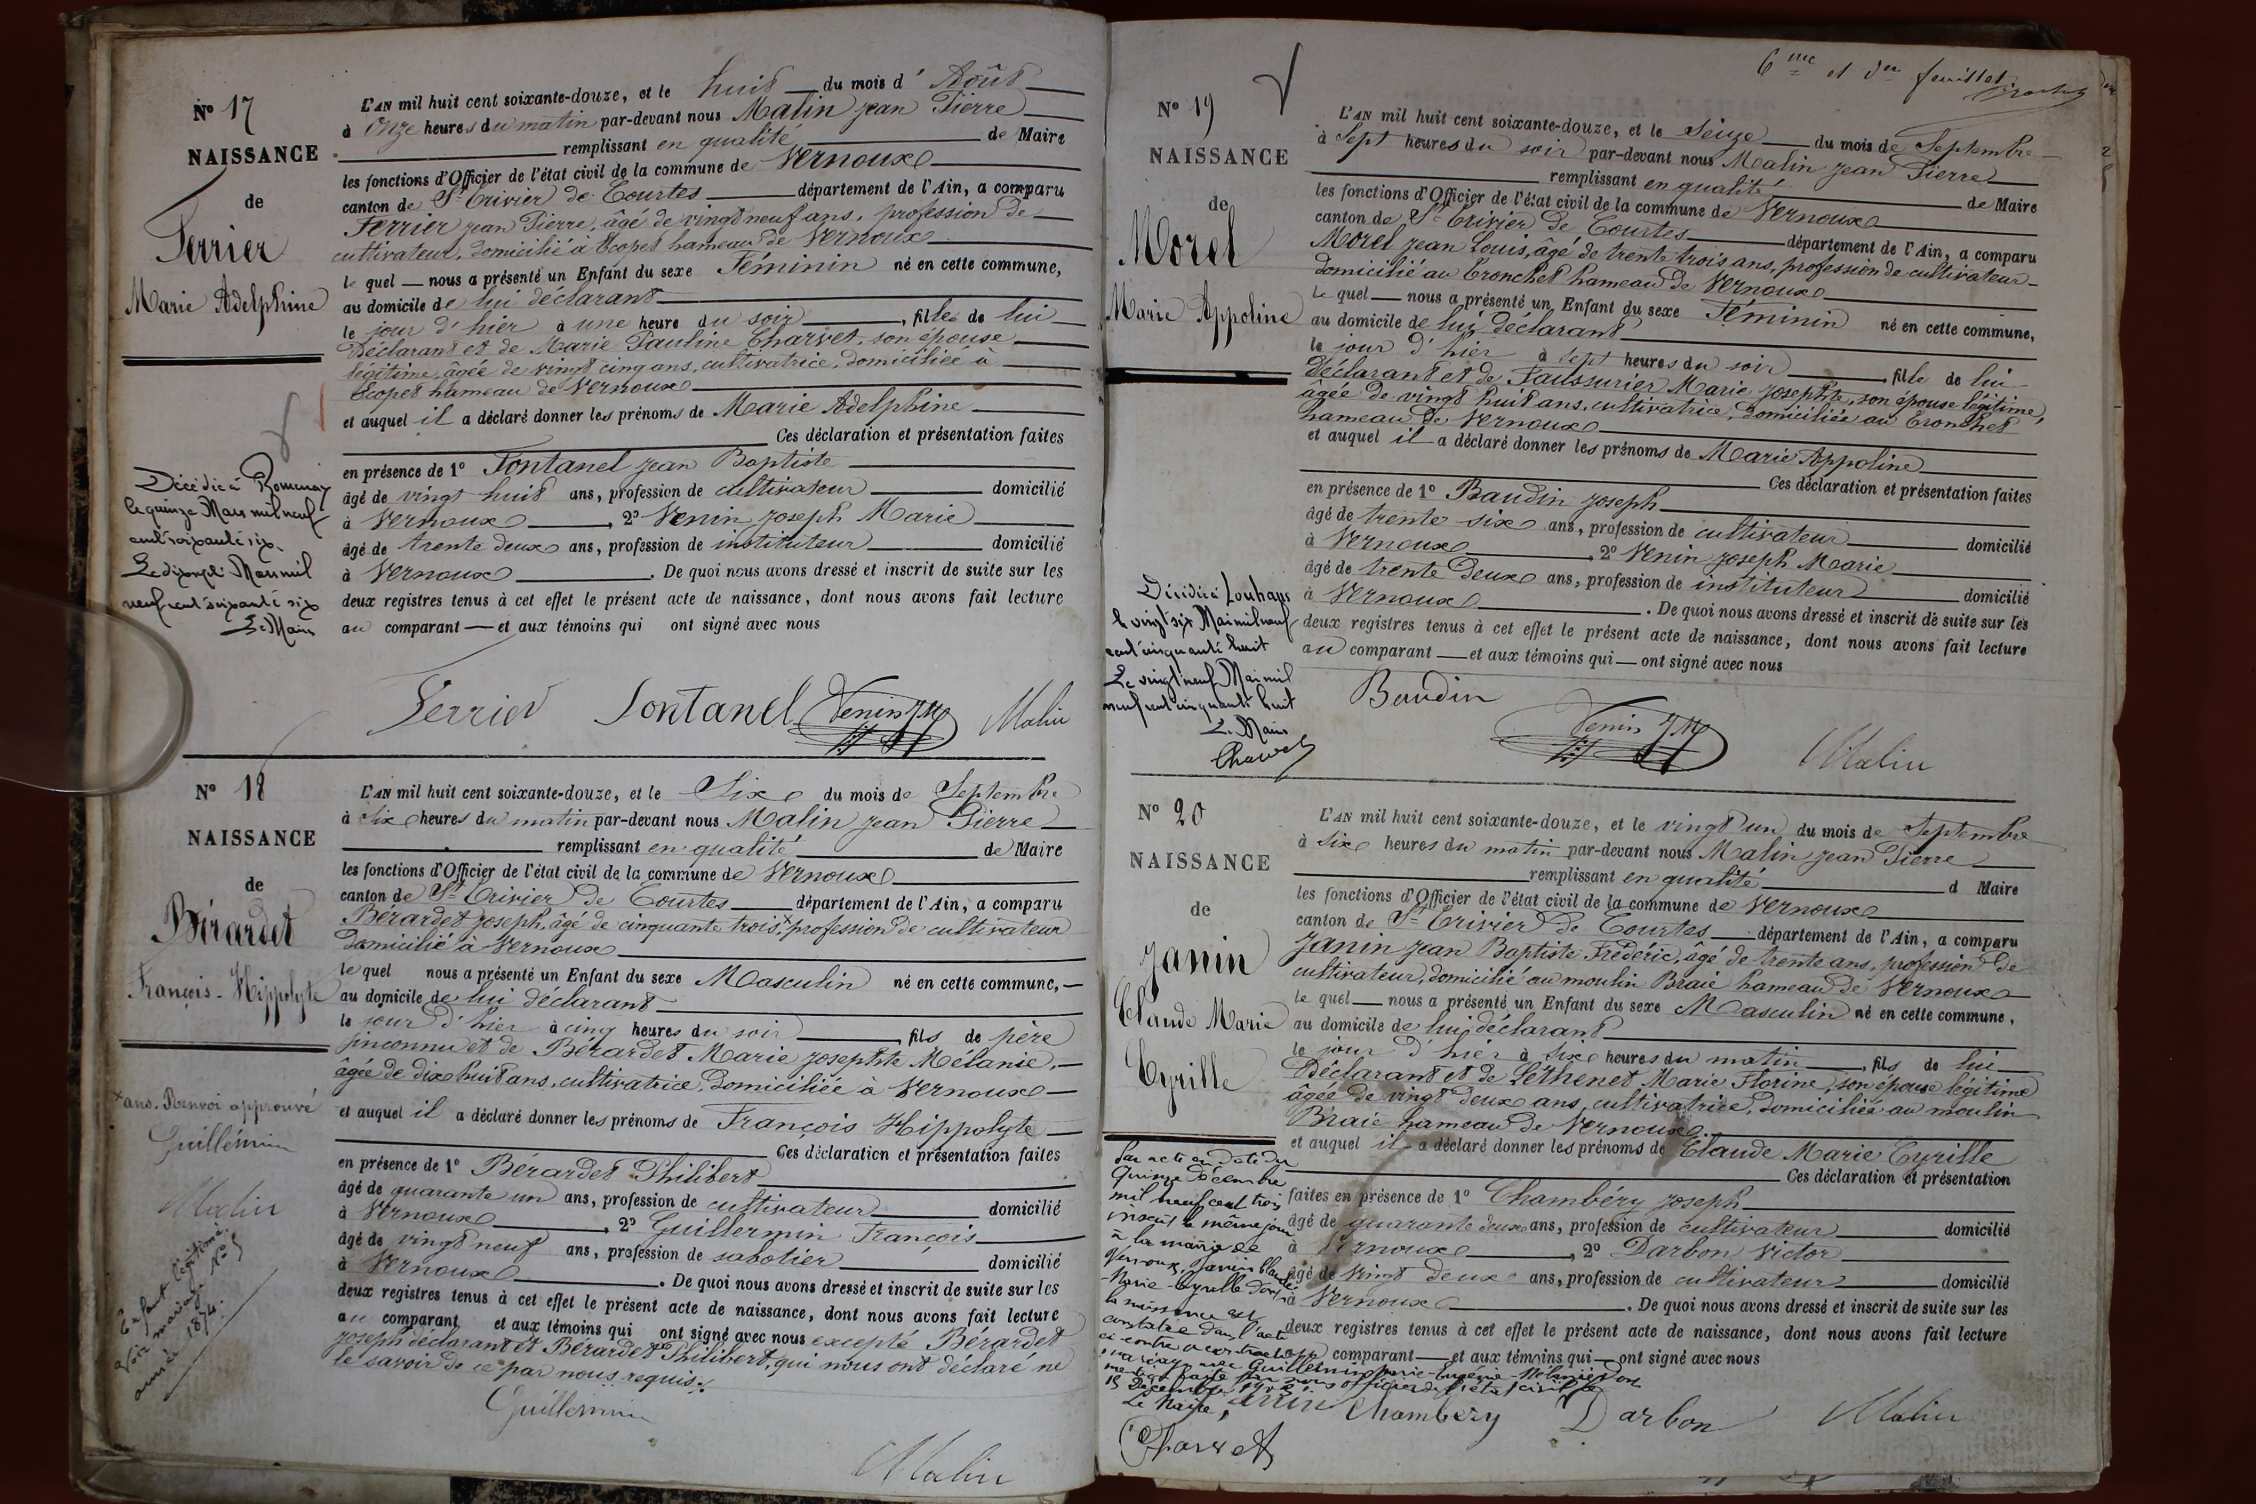 N° 17
NAISSANCE
de
Ferrier
Marie Adelphine
L'AN mil huit cent soixante-douze, et le huit du mois d'Août
à Onze heures du matin par-devant nous Malin jean Pierre
remplissant en qualité de Maire
les fonctions d'Officier de l'état civil de la commune de Vernoux
canton de St Trivier de Courtes département de l'Ain, a comparu
Ferrier jean Pierre, âgé de vingt neuf ans, profession de
cultivateur, domicilié à Ecopet hameau de Vernoux
le quel nous a présenté un Enfant du sexe Féminin né en cette commune,
au domicile de lui déclarant
le jour d'hier à une heure du soir, fille de lui
Déclarant et de Marie Pauline Charvet, son épouse
légitime, âgée de vingt cinq ans, cultivatrice, domiciliée à
Ecopet hameau de Vernoux
et auquel il a déclaré donner les prénoms de Marie Adelphine
Ces déclaration et présentation faites
en présence de 1° Fontanel jean Baptiste
âgé de vingt huit ans, profession de cultivateur domicilié
à Vernoux, 2° Venin joseph Marie
âgé de trente deux ans, profession de instituteur domicilié
à Vernoux. De quoi nous avons dressé et inscrit de suite sur les
deux registres tenus à cet effet le présent acte de naissance, dont nous avons fait lecture
au comparant et aux témoins qui ont signé avec nous
Décédée à Romenay
le quinze Mars mil neuf
cent soixante six.
Le dix sept Mars mil
neuf cent soixante six
Le Maire
Ferrier Fontanel Venin JM Malin
N° 18
NAISSANCE
de
Bérardet
François-Hippolyte
L'AN mil huit cent soixante-douze, et le Six du mois de Septembre
à Six heures du matin par-devant nous Malin jean Pierre
remplissant en qualité de Maire
les fonctions d'Officier de l'état civil de la commune de Vernoux
canton de St Trivier de Courtes département de l'Ain, a comparu
Bérardet joseph, âgé de cinquante trois x profession de cultivateur
domicilié à Vernoux
le quel nous a présenté un Enfant du sexe Masculin né en cette commune,
au domicile de lui déclarant
le jour d'hier à cinq heures du soir, fils de père
inconnu et de Bérardet Marie josephte Mélanie,
âgée de dix huit ans, cultivatrice, domiciliée à Vernoux
et auquel il a déclaré donner les prénoms de François Hippolyte
Ces déclaration et présentation faites
en présence de 1° Bérardet Philibert
âgé de quarante un ans, profession de cultivateur domicilié
à Vernoux, 2° Guillermin François
âgé de vingt neuf ans, profession de sabotier domicilié
à Vernoux. De quoi nous avons dressé et inscrit de suite sur les
deux registres tenus à cet effet le présent acte de naissance, dont nous avons fait lecture
au comparant et aux témoins qui ont signé avec nous excepté Bérardet
joseph déclarant et Bérardet Philibert, qui nous ont déclaré ne
le savoir de ce par nous requis.
x ans. Renvoi approuvé
Guillermin
Malin
Enfant légitimé
Voir mariage N° 5
année 1874.
Guillermin
Malin
6me et der feuillet
N° 19
NAISSANCE
de
Morel
Marie Appoline
L'AN mil huit cent soixante-douze, et le Seize du mois de Septembre
à Sept heures du soir par-devant nous Malin jean Pierre
remplissant en qualité de Maire
les fonctions d'Officier de l'état civil de la commune de Vernoux
canton de St Trivier de Courtes département de l'Ain, a comparu
Morel jean Louis, âgé de trente trois ans, profession de cultivateur
domicilié au Tronchet hameau de Vernoux
le quel nous a présenté un Enfant du sexe Féminin né en cette commune,
au domicile de lui déclarant
le jour d'hier à sept heures du soir, fille de lui
Déclarant et de Faussurier Marie josephte, son épouse légitime,
âgée de vingt huit ans, cultivatrice, domiciliée au Tronchet
hameau de Vernoux
et auquel il a déclaré donner les prénoms de Marie Appoline
Ces déclaration et présentation faites
en présence de 1° Baudin joseph
âgé de trente six ans, profession de cultivateur domicilié
à Vernoux, 2° Venin joseph Marie
âgé de trente deux ans, profession de instituteur domicilié
à Vernoux. De quoi nous avons dressé et inscrit de suite sur les
deux registres tenus à cet effet le présent acte de naissance, dont nous avons fait lecture
au comparant et aux témoins qui ont signé avec nous
Décédée à Louhans
le vingt six Mai mil neuf
cent cinquante huit
Le vingt neuf Mai mil
neuf cent cinquante huit
Le Maire
Baudin Venin JM Malin
N° 20
NAISSANCE
de
Janin
Claude Marie
Cyrille
L'AN mil huit cent soixante-douze, et le vingt un du mois de Septembre
à Six heures du matin par-devant nous Malin jean Pierre
remplissant en qualité d Maire
les fonctions d'Officier de l'état civil de la commune de Vernoux
canton de St Trivier de Courtes département de l'Ain, a comparu
Janin jean Baptiste Frédéric, âgé de trente ans, profession de
cultivateur, domicilié au moulin Braie hameau de Vernoux
le quel nous a présenté un Enfant du sexe Masculin né en cette commune,
au domicile de lui déclarant
le jour d'hier à six heures du matin, fils de lui
Déclarant et de Léthenet Marie Florine, son épouse légitime
âgée de vingt deux ans, cultivatrice, domiciliée au moulin
Braie hameau de Vernoux
et auquel il a déclaré donner les prénoms de Claude Marie Cyrille
Ces déclaration et présentation
faites en présence de 1° Chambéry joseph
âgé de quarante deux ans, profession de cultivateur domicilié
à Vernoux, 2° Darbon Victor
âgé de vingt deux ans, profession de cultivateur domicilié
à Vernoux. De quoi nous avons dressé et inscrit de suite sur les
deux registres tenus à cet effet le présent acte de naissance, dont nous avons fait lecture
au comparant et aux témoins qui ont signé avec nous
Par acte en date du
Quinze Décembre
mil neuf cent trois
inscrit le même jour
à la mairie de
Vernoux, Janin Claude
Marie Cyrille dont
la naissance est
constatée dans l'acte
ci-contre a contracté
mariage avec Guillermin Marie-Eugénie-Mélanie Dont
mention faite par nous officier de l'état civil le
15 Décembre 1903
Le Maire,
Charvet
Janin Chambéry Darbon Malin